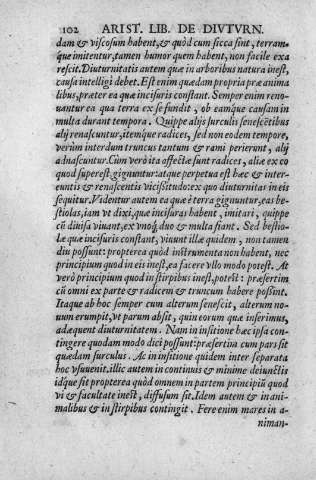 102 ARIST. LIB. DE DIVTVRN.
dam & viscosum habent, & quòd cum sicca sint, terram-
que imitentur, tamen humor quem habent, non facile exa
rescit. Diuturnitatis autem quæ in arboribus natura inest,
causa intelligi debet. Est enim quædam propria præ anima
libus, præter ea quæ incisuris constant. Semper enim reno-
uantur ea qua terra ex se fundit, ob eamque causam in
multa durant tempora. Quippe alijs surculis senescẽtibus
alij renascuntur, itemque radices, sed non eodem tempore,
verùm interdum truncus tantum & rami perierunt, alij
adnascuntur. Cum verò ita affectæ sunt radices, aliæ ex eo
quod superest gignuntur: atque perpetua est hæc & inter-
euntis & renascentis vicissitudo: ex quo diuturnitas in eis
sequitur. Videntur autem ea quæ è terra gignuntur, eas be-
stiolas, iam vt dixi, quæ incisuras habent, imitari, quippe
cũ diuisa viuant, ex vnoq; duo & multa fiant. Sed bestio-
læ quæ incisuris constant, viuunt illæ quidem, non tamen
diu possunt: propterea quòd instrumenta non habent, nec
principium quod in eis inest, ea facere vllo modo potest. At
verò principium quod in stirpibus inest, potest: præsertim
cũ omni ex parte & radicem & truncum habere possint.
Itaque ab hoc semper cum alterum senescit, alterum no-
uum erumpit, vt parum absit, quin eorum quæ inserimus,
adæquent diuturnitatem. Nam in insitione hæc ipsa con-
tingere quodam modo dici possunt: præsertim cum pars sit
quædam surculus. Ac in insitione quidem inter separata
hoc vsuuenit. illic autem in continuis & minime deiunctis
idque sit propterea quòd omnem in partem principiũ quod
vi & facultate inest, diffusum sit. Idem autem & in ani-
malibus & in stirpibus contingit. Fere enim mares in a-
niman-